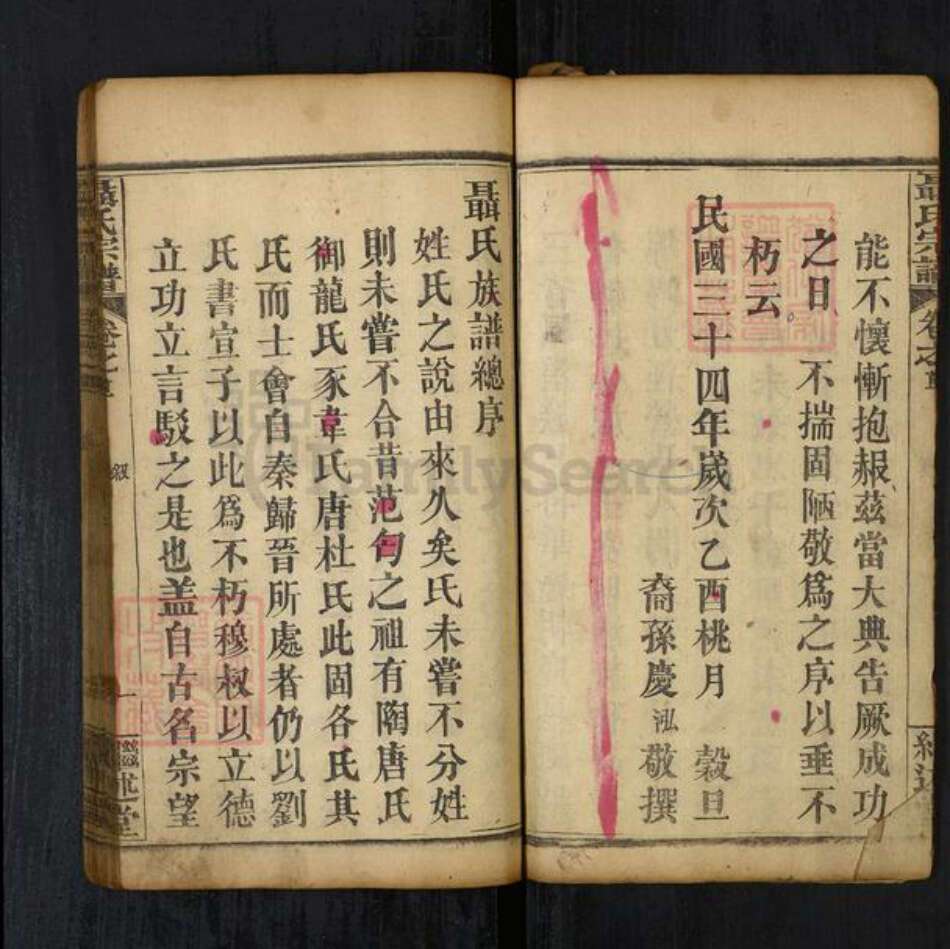 聶氏宗譜
卷之首
能不懷慚抱赧茲當大典告厥成功
之日 不揣固陋敬爲之序以垂不
朽云
民國三十四年歲次乙酉桃月 穀旦
裔孫慶泓敬撰
聶氏族譜總序
姓氏之說由來久矣氏未嘗不分姓
則未嘗不合昔范匄之祖有陶唐氏
御龍氏豕韋氏唐杜氏此固各氏其
氏而士會自秦歸晉所處者仍以劉
氏書宣子以此爲不朽穆叔以立德
立功立言駁之是也盖自古名宗望
聶氏宗譜
卷之首
叙
一
述堂
FamilySearch